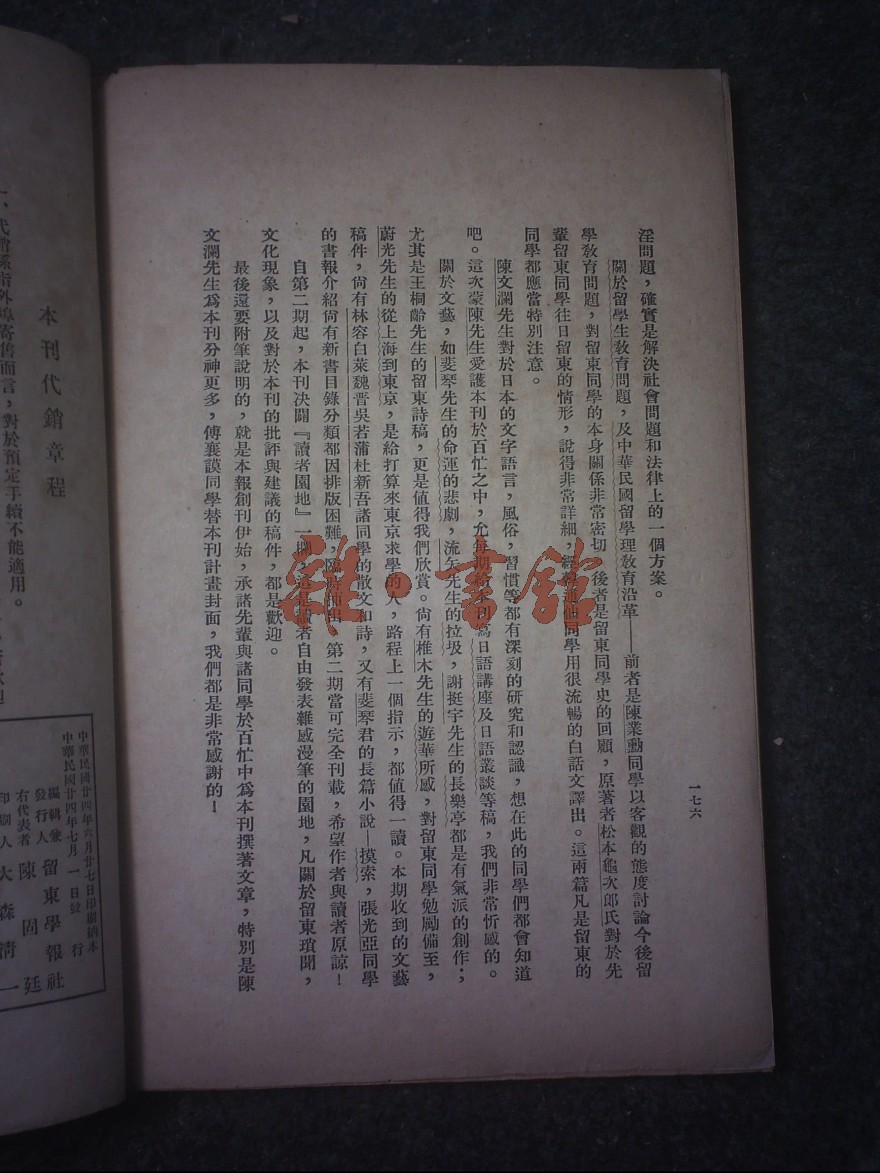 一七六
淫問題，確實是解決社會問題和法律上的一個方案。
關於留學生教育問題，及中華民國留學理教育沿革——前者是陳業勳同學以客觀的態度討論今後留
學教育問題，對留東同學的本身關係非常密切，後者是留東同學史的回顧，原著者松本龜次郎氏對於先
輩留東同學往日留東的情形，說得非常詳細，經 同學用很流暢的白話文譯出。這兩篇凡是留東的
同學都應當特別注意。
陳文瀾先生對於日本的文字語言，風俗，習慣等都有深刻的研究和認識，想在此的同學們都會知道
吧。這次蒙陳先生愛護本刊於百忙之中，允每期給本刊寫日語講座及日語叢談等稿，我們非常忻感的。
關於文藝，如斐琴先生的命運的悲劇，流矢先生的拉圾，謝挺宇先生的長樂亭都是有氣派的創作；
尤其是王桐齡先生的留東詩稿，更是值得我們欣賞。尚有椎木先生的遊華所感，對留東同學勉勵備至，
蔚光先生的從上海到東京，是給打算來東京求學的人，路程上一個指示，都值得一讀。本期收到的文藝
稿件，尚有林容白萊魏晋吳若蒲杜新吾諸同學的散文和詩，又有斐琴君的長篇小說——摸索，張光亞同學
的書報介紹尚有新書目錄分類都因排版困難，臨時抽出，第二期當可完全刊載，希望作者與讀者原諒！
自第二期起，本刊決闢『讀者園地』一欄，這是讀者自由發表雜感漫筆的園地，凡關於留東瑣聞，
文化現象，以及對於本刊的批評與建議的稿件，都是歡迎。
最後還要附筆說明的，就是本報創刊伊始，承諸先輩與諸同學於百忙中爲本刊撰著文章，特別是陳
文瀾先生爲本刊分神更多，傅襄謨同學替本刊計畫封面，我們都是非常感謝的！
雜·書館
本刊代銷章程
一、代銷係指外埠寄售而言，對於預定手續不能適用。
中華民國廿四年六月廿七日印刷納本
中華民國廿四年七月一日發行
編輯兼發行人 留東學報社
右代表者 陳固廷
印刷人 大森清一